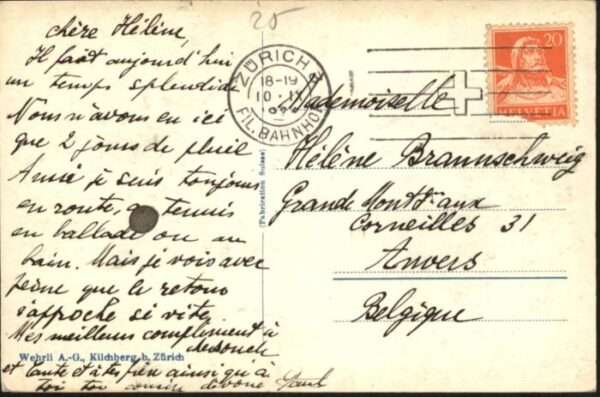 25
chère Hélène,
Il fait aujourd'hui
un temps splendide
Nous n'avons eu ici
que 2 jours de pluie
Aussi je suis toujours
en route, au tennis
en ballade ou au
bain. Mais je vois avec
peine que le retour
s'approche si vite.
Mes meilleurs compliments à
et tante et à tes frères ainsi qu'à
toi ton cousin dévoué Paul
Wehrli A.-G., Kilchberg b. Zürich
(Fabrication Suisse)
ZÜRICH 2
18-19
10. IX
FIL. BAHNHOF
20
HELVETIA
Mademoiselle
Hélène Braunschweig
Grande Montagne aux
Corneilles 31
Anvers
Belgique